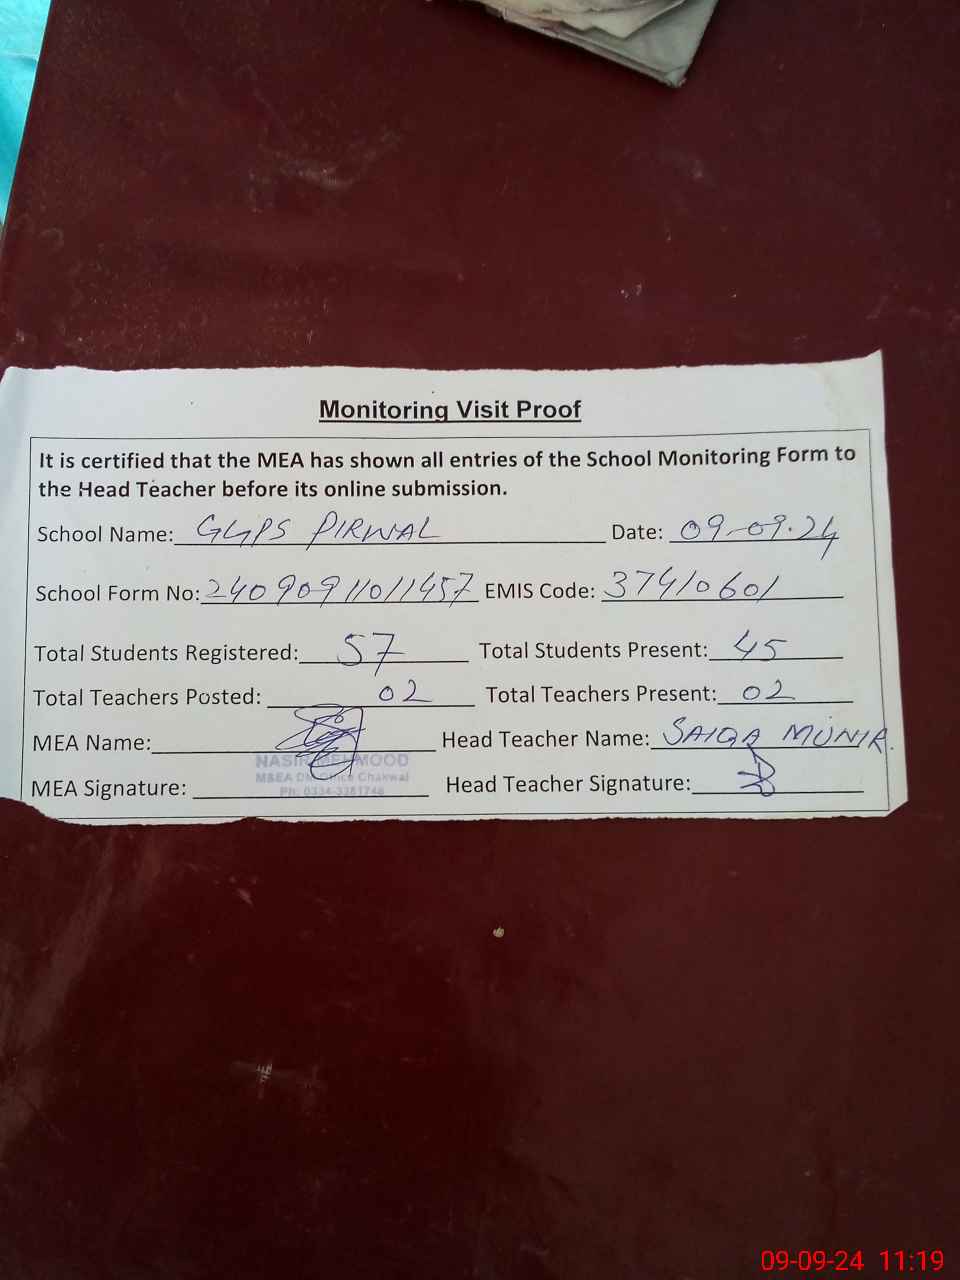 Monitoring Visit Proof
It is certified that the MEA has shown all entries of the School Monitoring Form to
the Head Teacher before its online submission.
School Name: GGPS PIRWAL Date: 09-09-24
School Form No: 24090911011457 EMIS Code: 37410601
Total Students Registered: 57 Total Students Present: 45
Total Teachers Posted: 02 Total Teachers Present: 02
MEA Name: Head Teacher Name: SAIQA MUNIR.
NASIR MEHMOOD
M&EA Office Chakwal
MEA Signature: Head Teacher Signature:
Ph: 0334-3381748
09-09-24 11:19